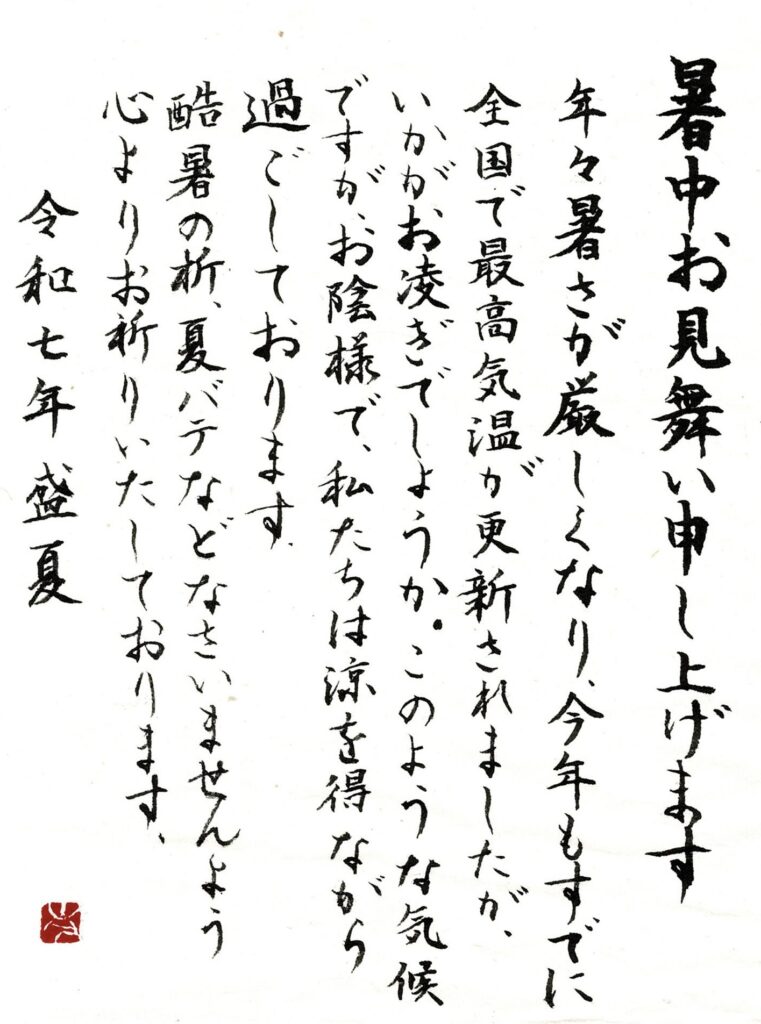 暑中お見舞い申し上げます
年々暑さが厳しくなり、今年もすでに
全国で最高気温が更新されましたが、
いかがお凌ぎでしょうか。このような気候
ですが、お陰様で、私たちは涼を得ながら
過ごしております。
酷暑の折、夏バテなどなさいませんよう
心よりお祈りいたしております。
令和七年 盛夏